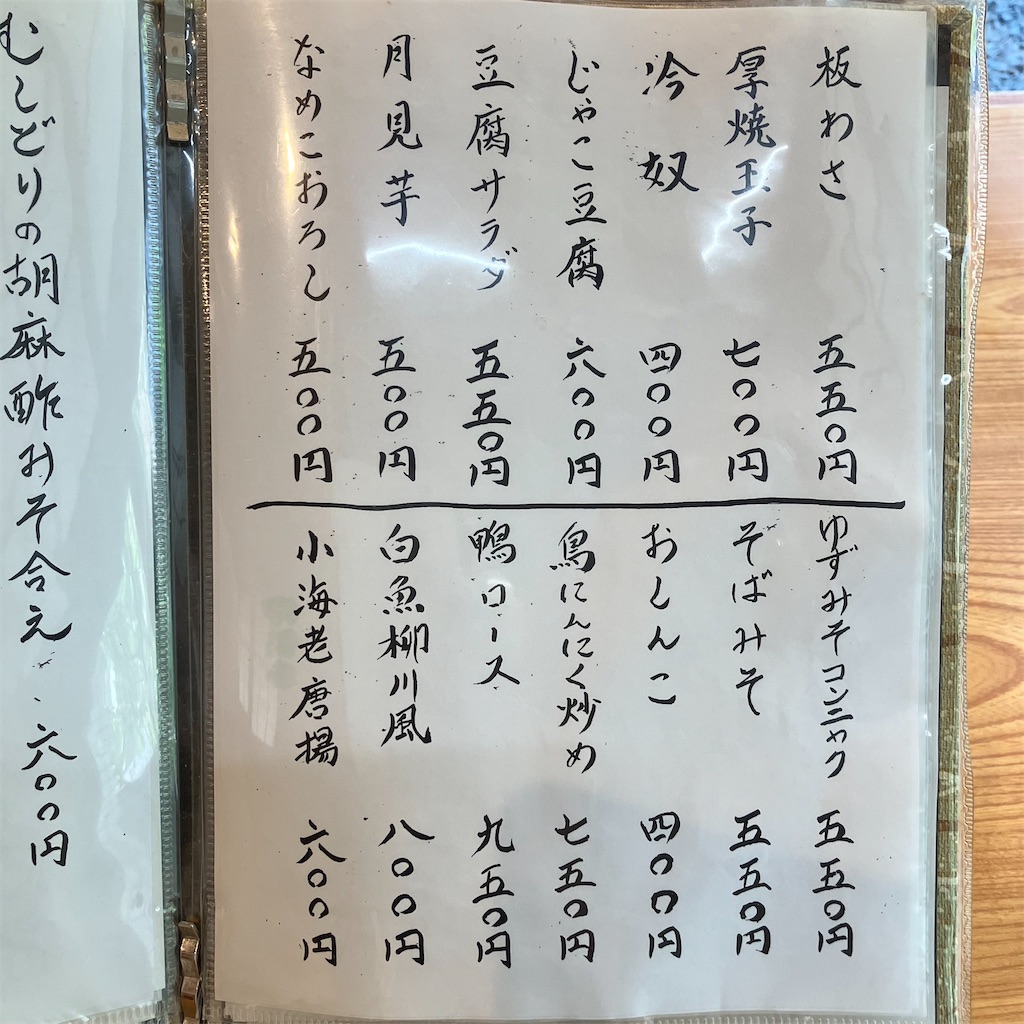 板わさ 五五〇円
厚焼玉子 七〇〇円
冷奴 四〇〇円
じゃこ豆腐 六〇〇円
豆腐サラダ 五五〇円
月見芋 五〇〇円
なめこおろし 五〇〇円
ゆずみそコンニャク 五五〇円
そばみそ 五五〇円
おしんこ 四〇〇円
鳥にんにく炒め 七五〇円
鴨ロース 九五〇円
白魚柳川風 八〇〇円
小海老唐揚 六〇〇円
むしどりの胡麻酢みそ合え 六〇〇円